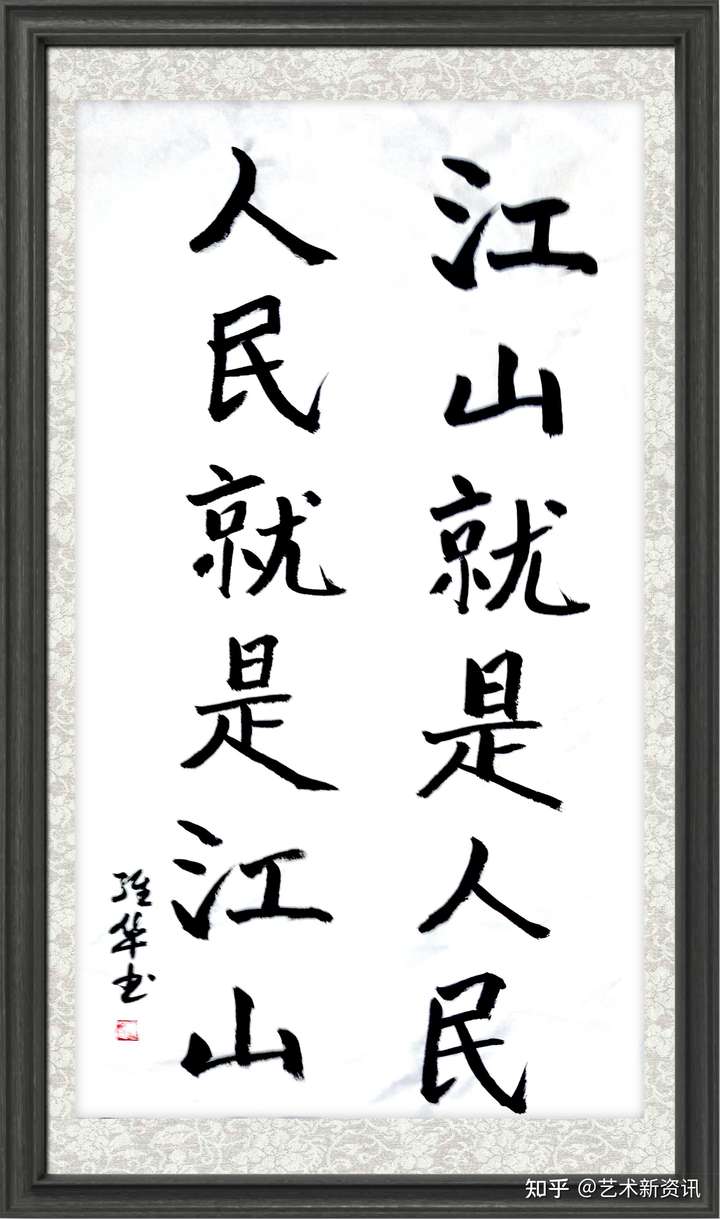 江山就是人民
人民就是江山
维华书
知乎 @艺术新资讯